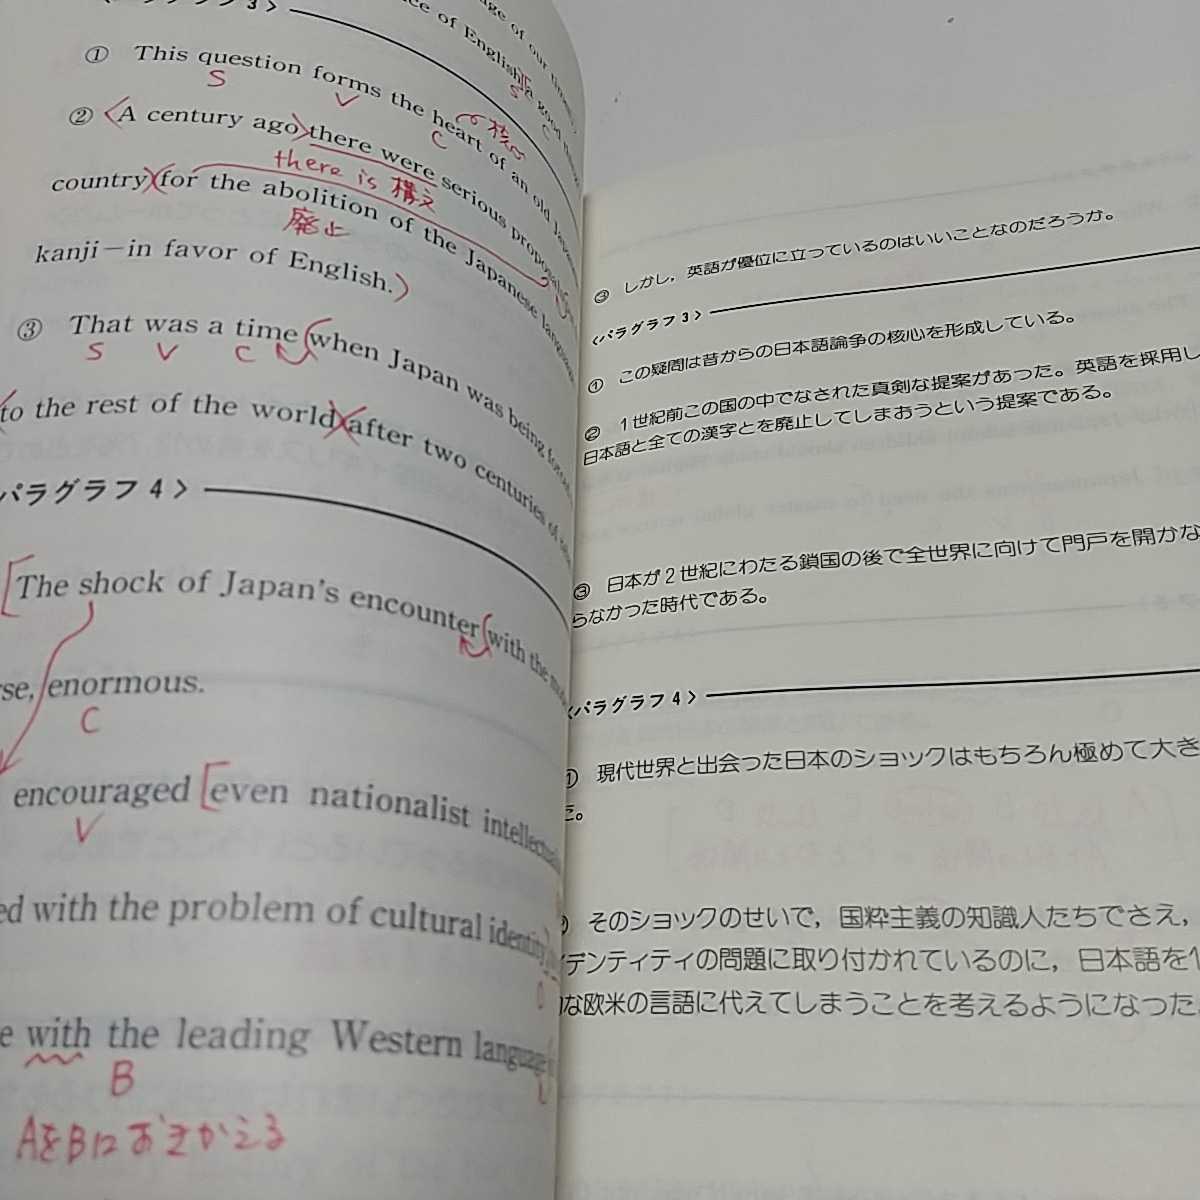 ge of our times
ce of English a good thing
パラグラフ 3 〉
① This question forms the heart of an old Japan
S V C 核心
② 〈A century ago〉there were serious proposals
there is 構文
country〉〈for the abolition of the Japanese language
廃止
kanji－in favor of English.〉
③ That was a time when Japan was being forced
S V C
to the rest of the world 〉〈after two centuries of
パラグラフ 4 〉
The shock of Japan's encounter with the mod
rse, enormous.
C
encouraged [even nationalist intellectuals
V
ed with the problem of cultural identity
O
e with the leading Western language
B
AをBにおきかえる
③ しかし，英語が優位に立っているのはいいことなのだろうか。
〈パラグラフ 3 〉
① この疑問は昔からの日本語論争の核心を形成している。
② 1世紀前この国の中でなされた真剣な提案があった。英語を採用し
日本語と全ての漢字とを廃止してしまおうという提案である。
③ 日本が2世紀にわたる鎖国の後で全世界に向けて門戸を開かな
らなかった時代である。
〈パラグラフ 4 〉
① 現代世界と出会った日本のショックはもちろん極めて大き
た。
そのショックのせいで，国粋主義の知識人たちでさえ，
イデンティティの問題に取り付かれているのに，日本語を
的な欧米の言語に代えてしまうことを考えるようになった